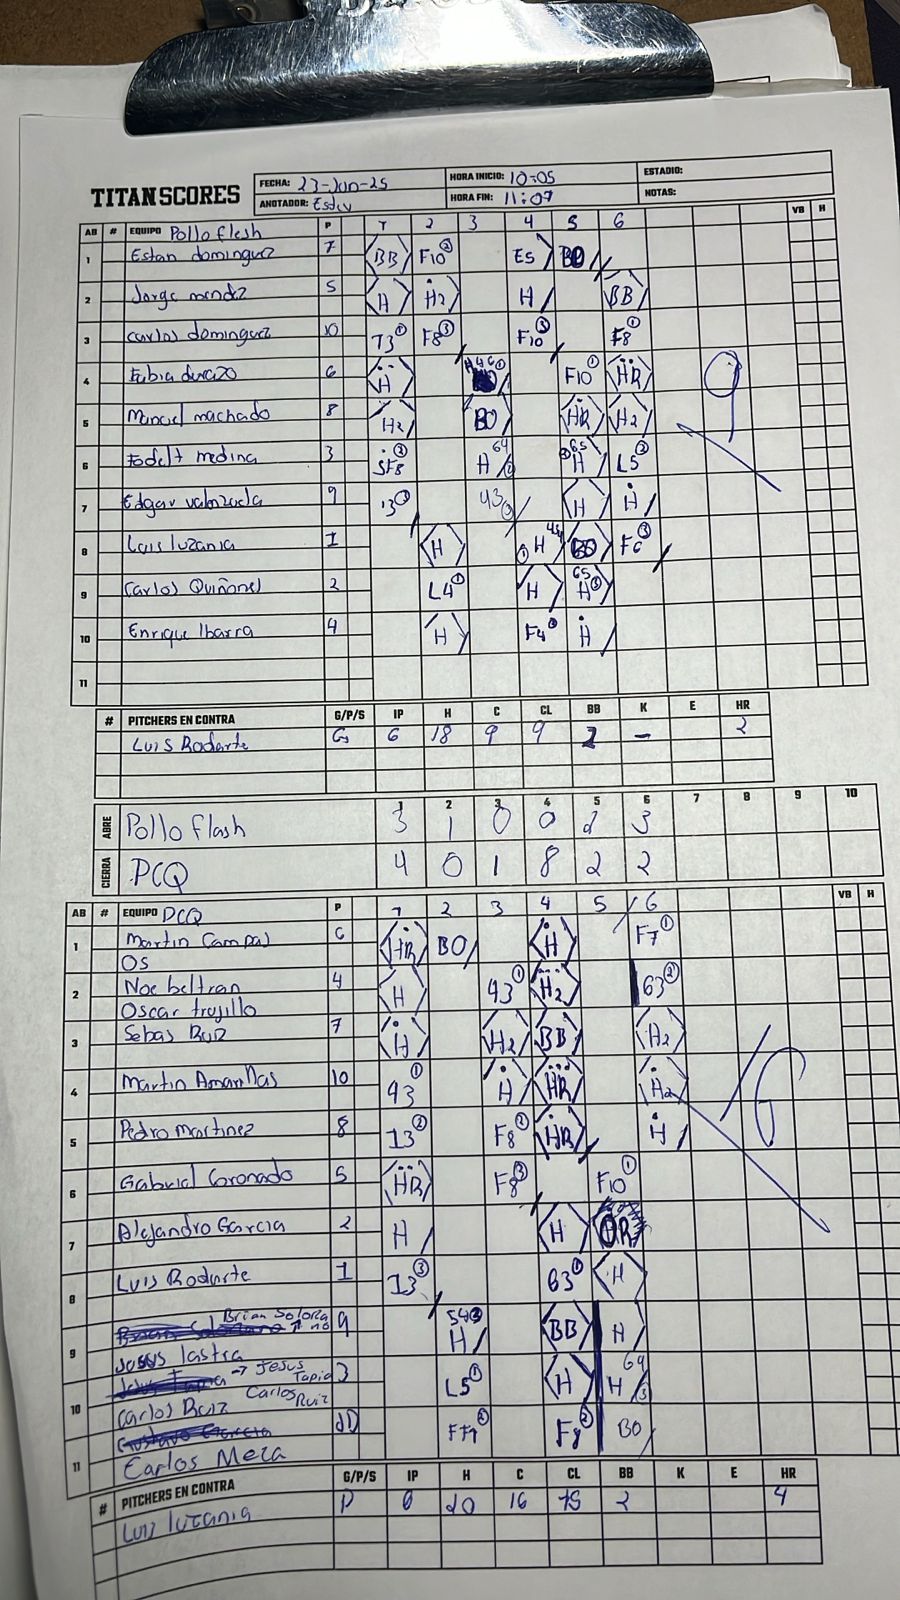 TITAN SCORES
FECHA: 23-Jun-25 HORA INICIO: 10:05 ESTADIO:
ANOTADOR: HORA FIN: 11:07 NOTAS:
AB # EQUIPO Pollo flesh P 1 2 3 4 5 6 VB H
1 Estan dominguez 7 BB F10 ② E5
2 Jorge mendez 5 H H2 H BB
3 Carlos dominguez 10 T3 ① F8 ③ F10 ③ F8 ①
4 Fabia durazo 6 H H46 ① F10 ① HR
5 Manuel machado 8 H2 BO HR H2
6 Fodelt medina 3 SF8 ② H 64 ② H 65 ② L5 ②
7 Edgar valenzuela 9 13 ③ 43 ③ H H
8 Luis luzania 1 H ① H BO F6 ③
9 Carlos Quiñonez 2 L4 ① H H 65 ③
10 Enrique Ibarra 4 H F4 ② H
11
9
# PITCHERS EN CONTRA G/P/S IP H C CL BB K E HR
Luis Rodarte G 6 18 9 9 2 - 2
1 2 3 4 5 6 7 8 9 10
ABRE Pollo flash 3 1 0 0 2 3
CIERRA PCQ 4 0 1 8 2 2
AB # EQUIPO PCQ P 1 2 3 4 5 6 VB H
1 Martin Campas 6 HR BO H F7 ①
OS
2 Noe beltran 4 H 43 ① H2 63 ②
Oscar trujillo
3 Sebas Ruiz 7 H H2 BB H2
4 Martin Amarillas 10 43 ① H HR H2
5 Pedro martinez 8 13 ② F8 ② HR H
6 Gabriel Coronado 5 HR F8 ③ F10 ①
7 Alejandro Garcia 2 H H
8 Luis Rodarte 1 13 ③ 63 ① H
Brian Solorzano
9 9 H 54 BB H
Jesus lastra
Jesus Tapia → Jesus Tapia
10 3 L5 ① H H 64 ③
Carlos Ruiz Carlos Ruiz
Gustavo Garcia
11 FF7 ② F8 ② BO
Carlos Meza
16
# PITCHERS EN CONTRA G/P/S IP H C CL BB K E HR
Luis luzania P 6 20 16 15 2 4